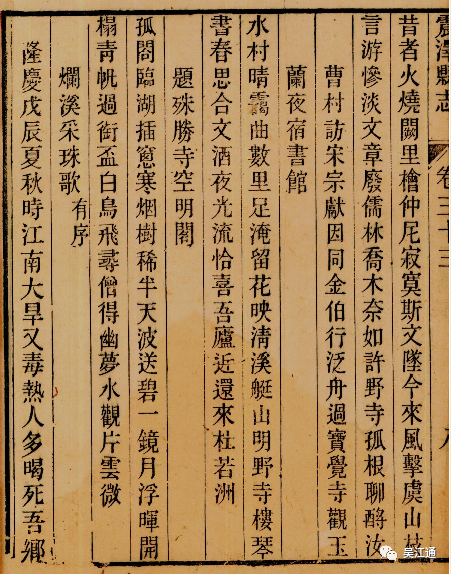 震澤縣志 卷三十三
昔者火燒闕里檜仲尼寂寞斯文墜今來風擊虞山
言游慘淡文章廢儒林喬木奈如許野寺孤根聊酹汝
曹村訪宋宗獻因同金伯行泛舟過寶覺寺觀玉
蘭夜宿書館
水村晴靄曲數里足淹留花映淸溪艇山明野寺樓琴
書春思合文酒夜光流恰喜吾廬近還來杜若洲
題殊勝寺空明閣
孤閣臨湖插窻寒烟樹稀半天波送碧一鏡月浮暉開
榻靑帆過銜盃白鳥飛尋僧得幽夢水觀片雲微
爛溪采珠歌 有序
隆慶戊辰夏秋時江南大旱又毒熱人多暍死吾鄉
吴江通